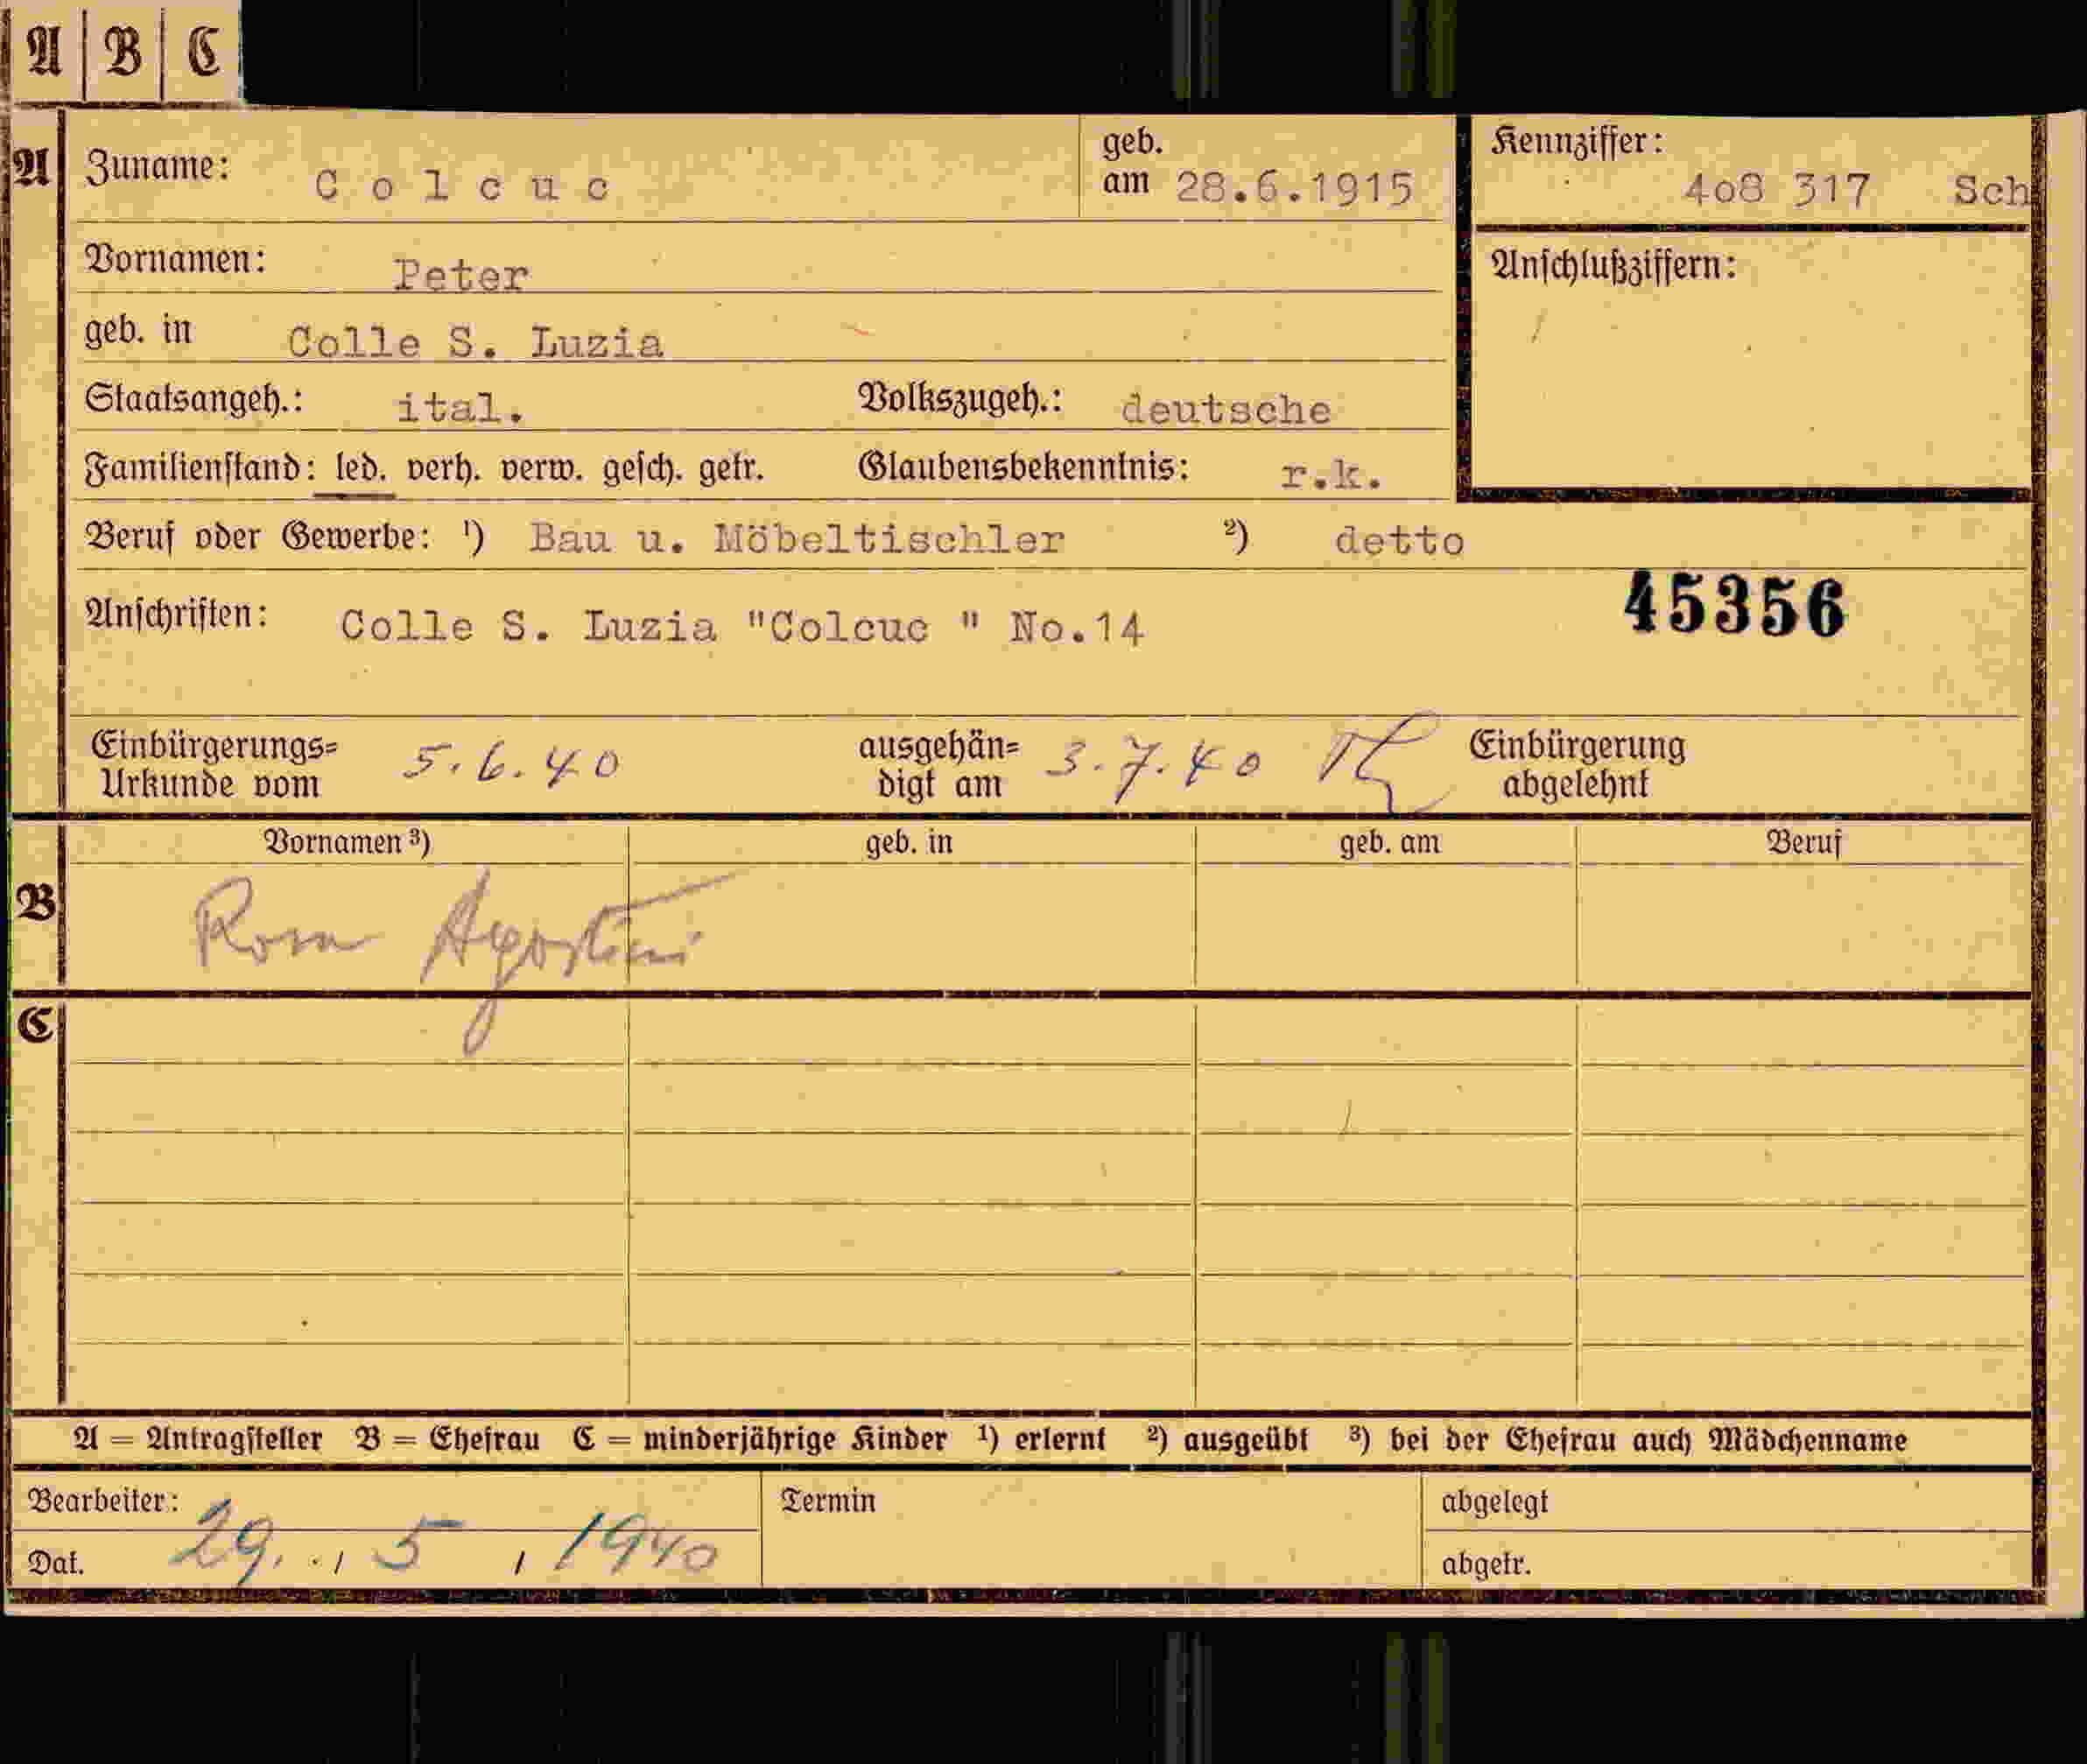 A | B | C
A
Zuname: Colcuc
geb. am 28.6.1915
Kennziffer: 4o8 317 Sch
Vornamen: Peter
Anschlußziffern:
geb. in Colle S. Luzia
Staatsangeh.: ital. Volkszugeh.: deutsche
Familienstand: led. verh. verw. gesch. getr. Glaubensbekenntnis: r.k.
Beruf oder Gewerbe: ¹) Bau u. Möbeltischler ²) detto
Anschriften: Colle S. Luzia "Colcuc " No.14
45356
Einbürgerungs=
Urkunde vom 5.6.40
ausgehän=
digt am 3.7.40
Einbürgerung
abgelehnt
Vornamen ³) geb. in geb. am Beruf
B
Rosa Agostini
C
A = Antragsteller B = Ehefrau C = minderjährige Kinder ¹) erlernt ²) ausgeübt ³) bei der Ehefrau auch Mädchenname
Bearbeiter: Termin abgelegt
Dat. 29. 5 1940 abgetr.